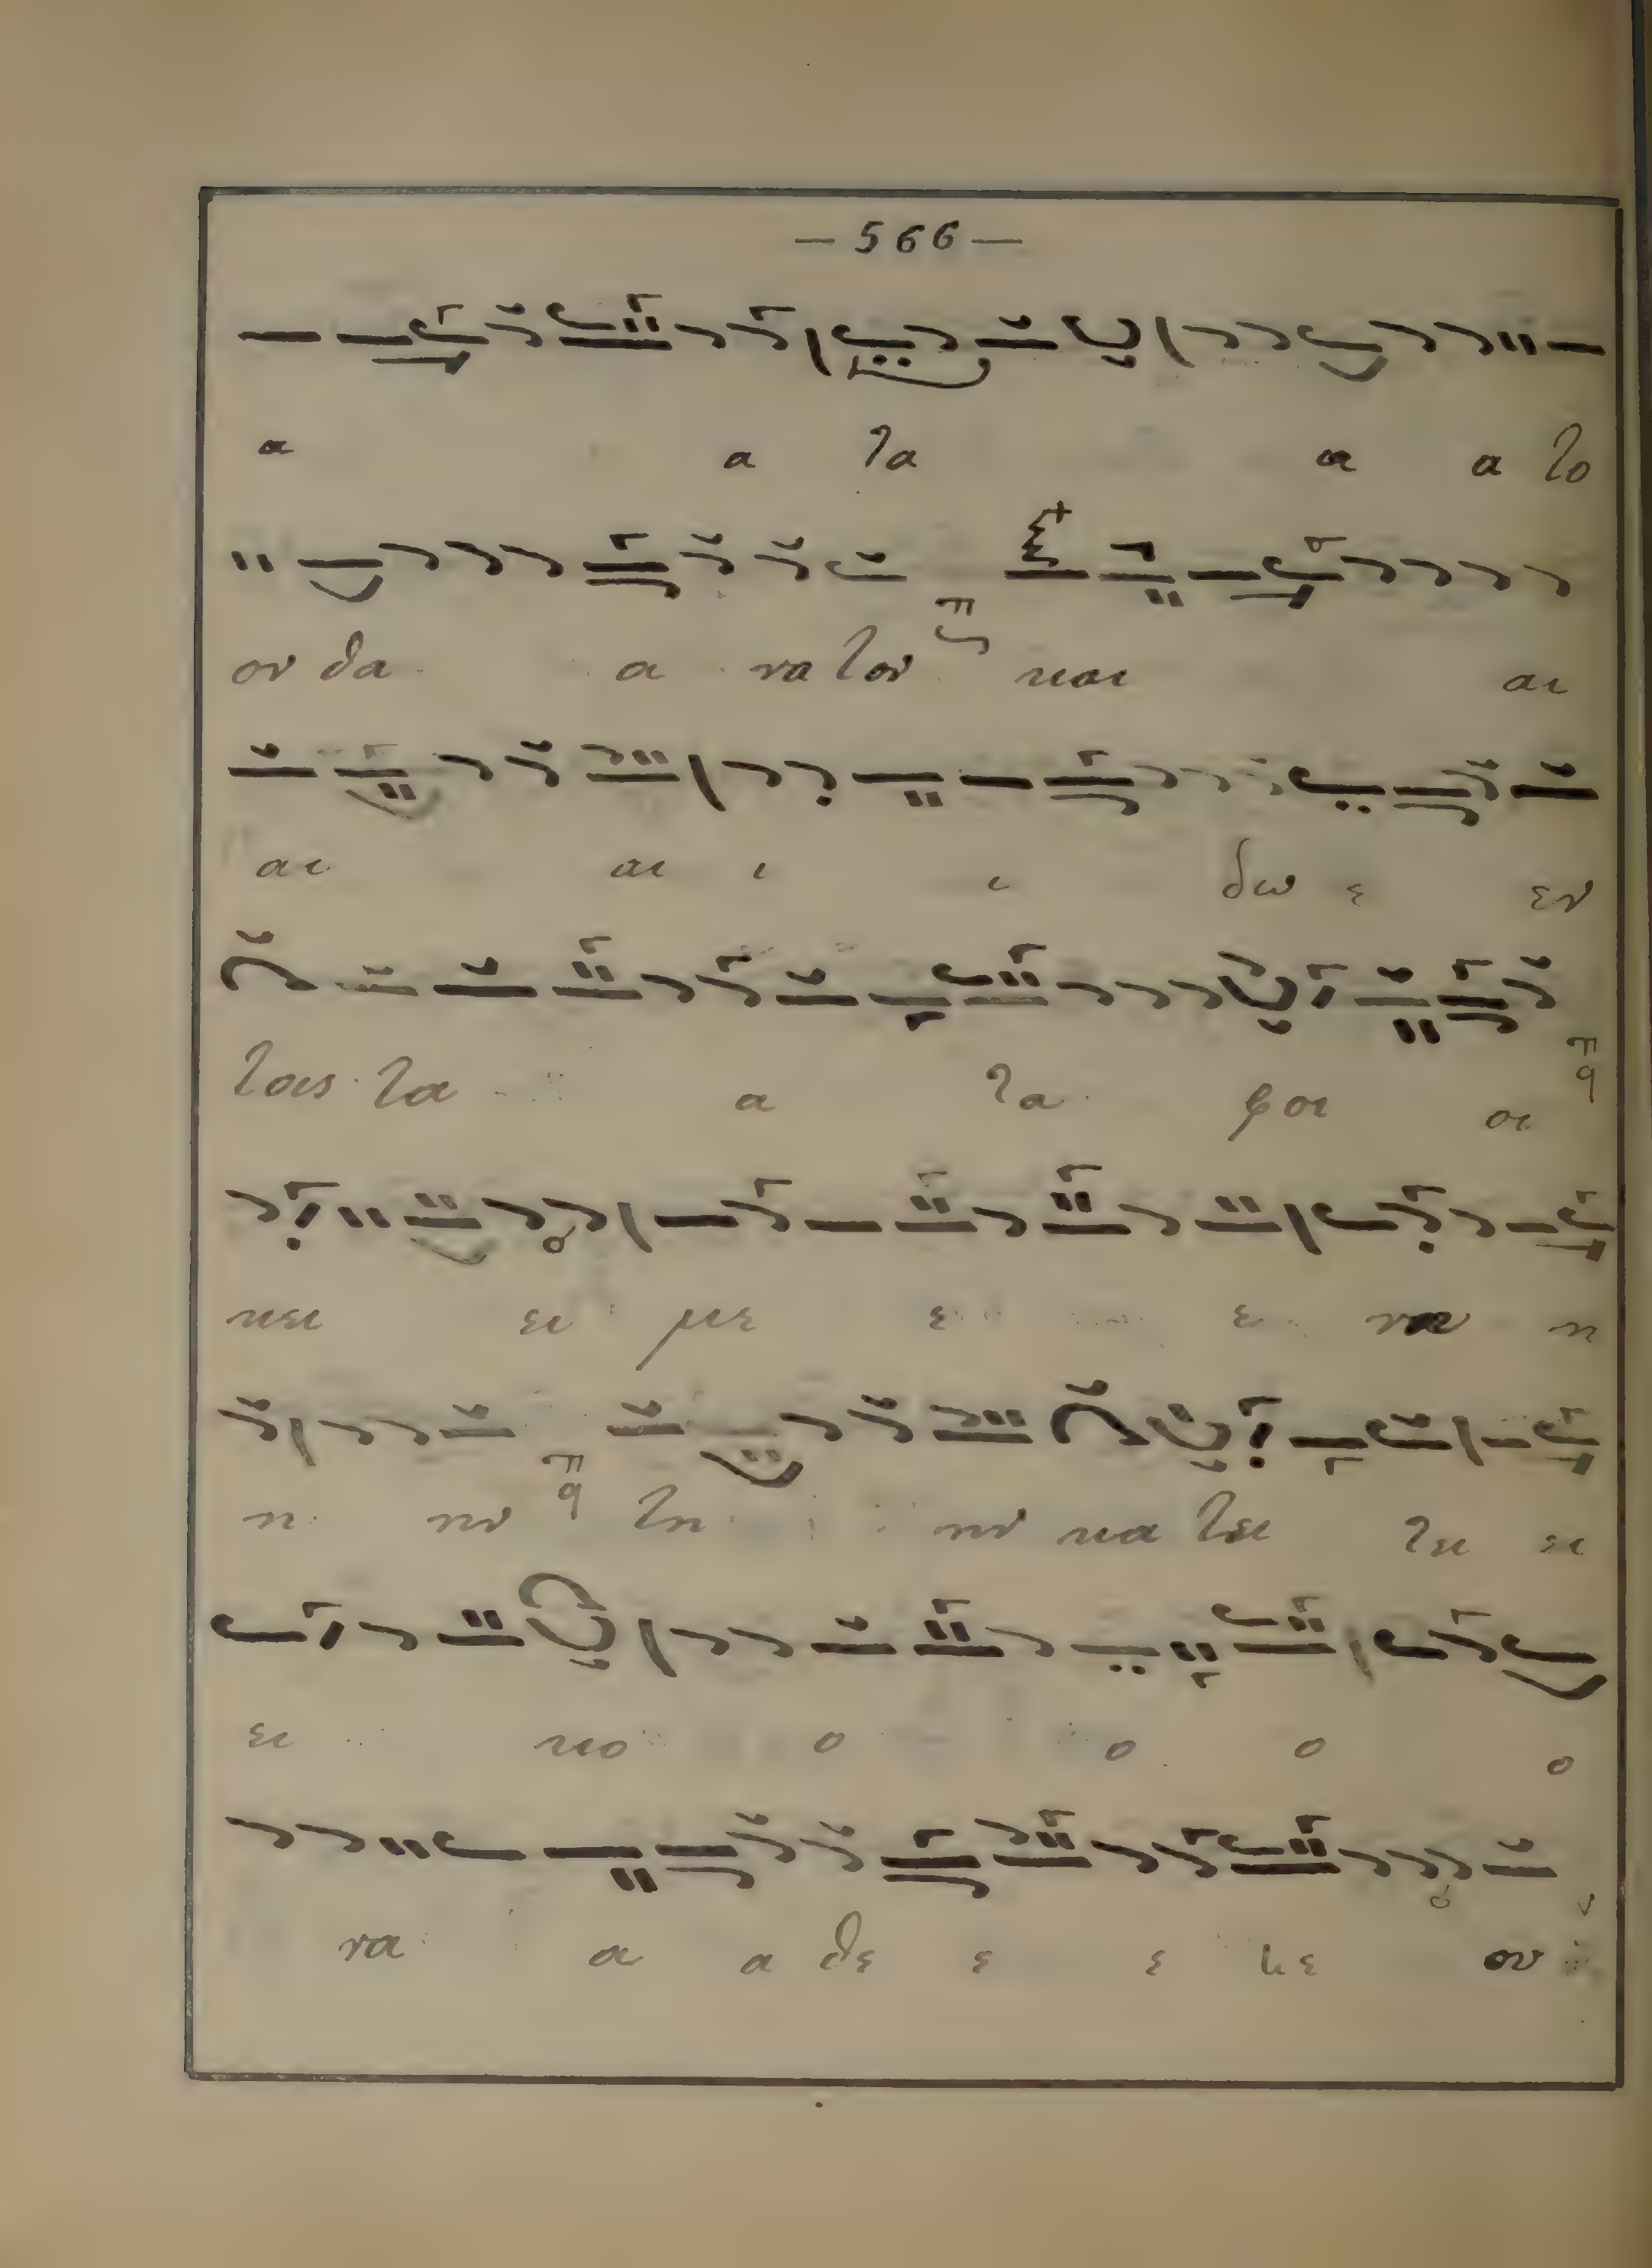 — 566 —
α α τα α α το
ον θα α να τον και αι
αι αι ι ι δω ε εν
τοις τα α τα φοι οι
κει ει με ε ε να η
η ην τη ην κα τει τει ει
ει κο ο ο ο ο
να α α θε ε ε με ον